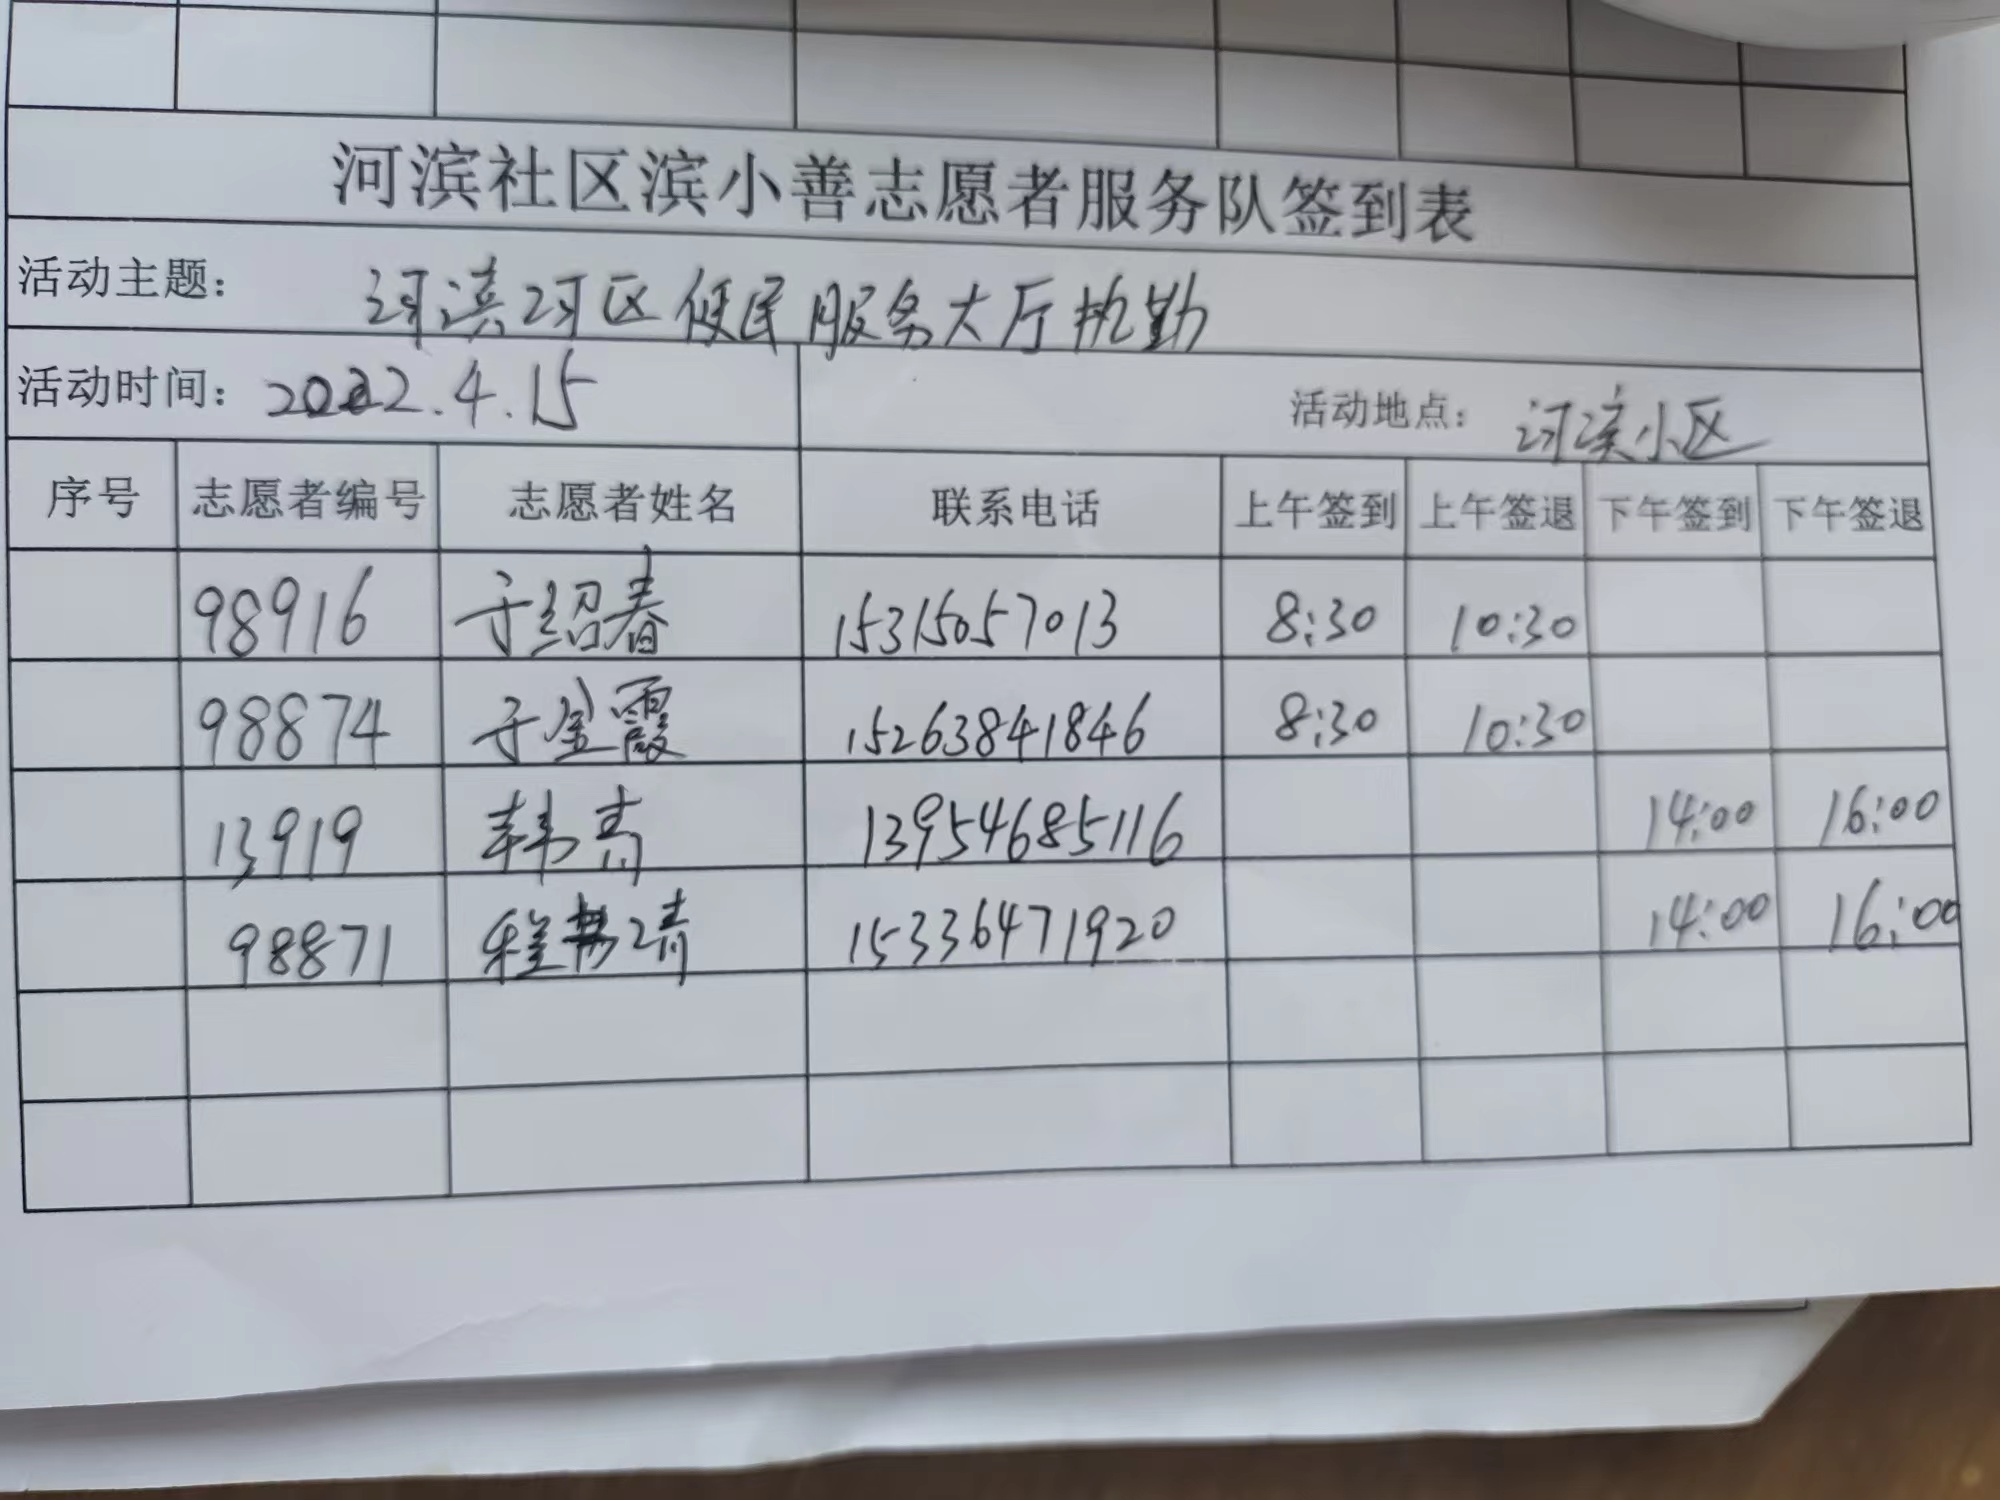 河滨社区滨小善志愿者服务队签到表
活动主题： 河滨河区便民服务大厅执勤
活动时间：2022.4.15 活动地点： 河滨小区
序号 志愿者编号 志愿者姓名 联系电话 上午签到 上午签退 下午签到 下午签退
98916 于绍春 15315057013 8:30 10:30
98874 于金霞 15263841846 8:30 10:30
13919 韩青 13954685116 14:00 16:00
98871 程 清 15336471920 14:00 16:00